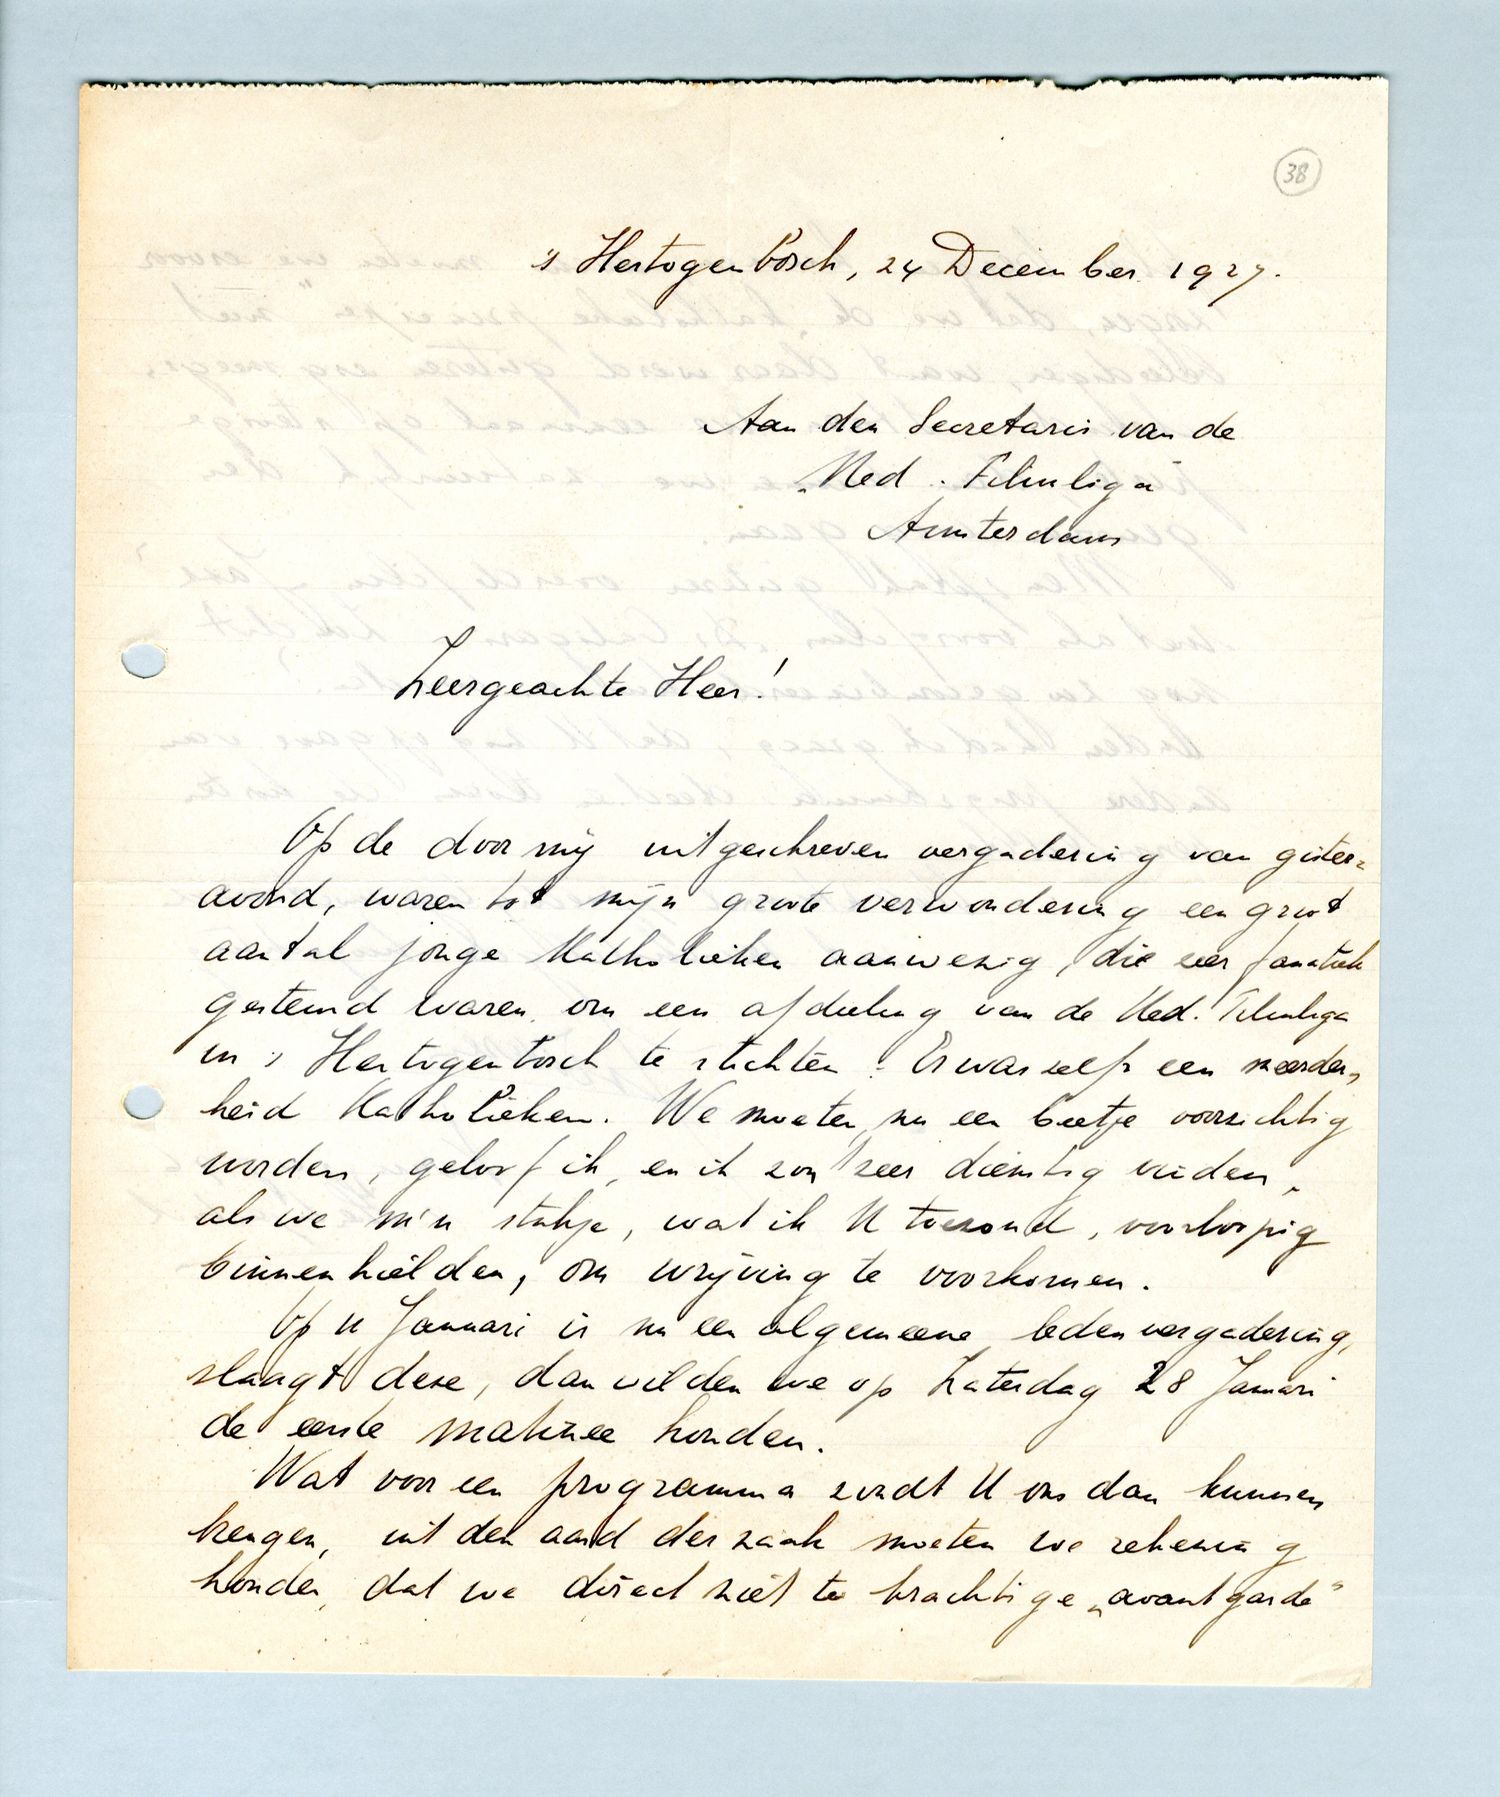 38
's Hertogenbosch, 24 December 1927.
Aan den Secretaris van de
„Ned. Filmliga"
Amsterdam
Zeergeachte Heer!
Op de door mij uitgeschreven vergadering van gister=
avond, waren tot mijn groote verwondering een groot
aantal jonge Katholieken aanwezig, die zeer fanatiek
gestemd waren om een afdeeling van de Ned. Filmliga
in 's Hertogenbosch te stichten. Er was zelfs een meerder=
heid Katholieken. We moeten nu een beetje voorzichtig
worden, geloof ik, en ik zou 't zeer dienstig vinden,
als we m'n stukje, wat ik U toezond, voorloopig
binnenhielden, om wrijving te voorkomen.
Op 11 Januari is nu een algemeene ledenvergadering,
slaagt deze, dan wilden we op Zaterdag 28 Januari
de eerste matinee houden.
Wat voor een programma zoudt U ons dan kunnen
brengen, uit den aard der zaak moeten we rekening
houden, dat we direct niet te krachtige „avant garde"